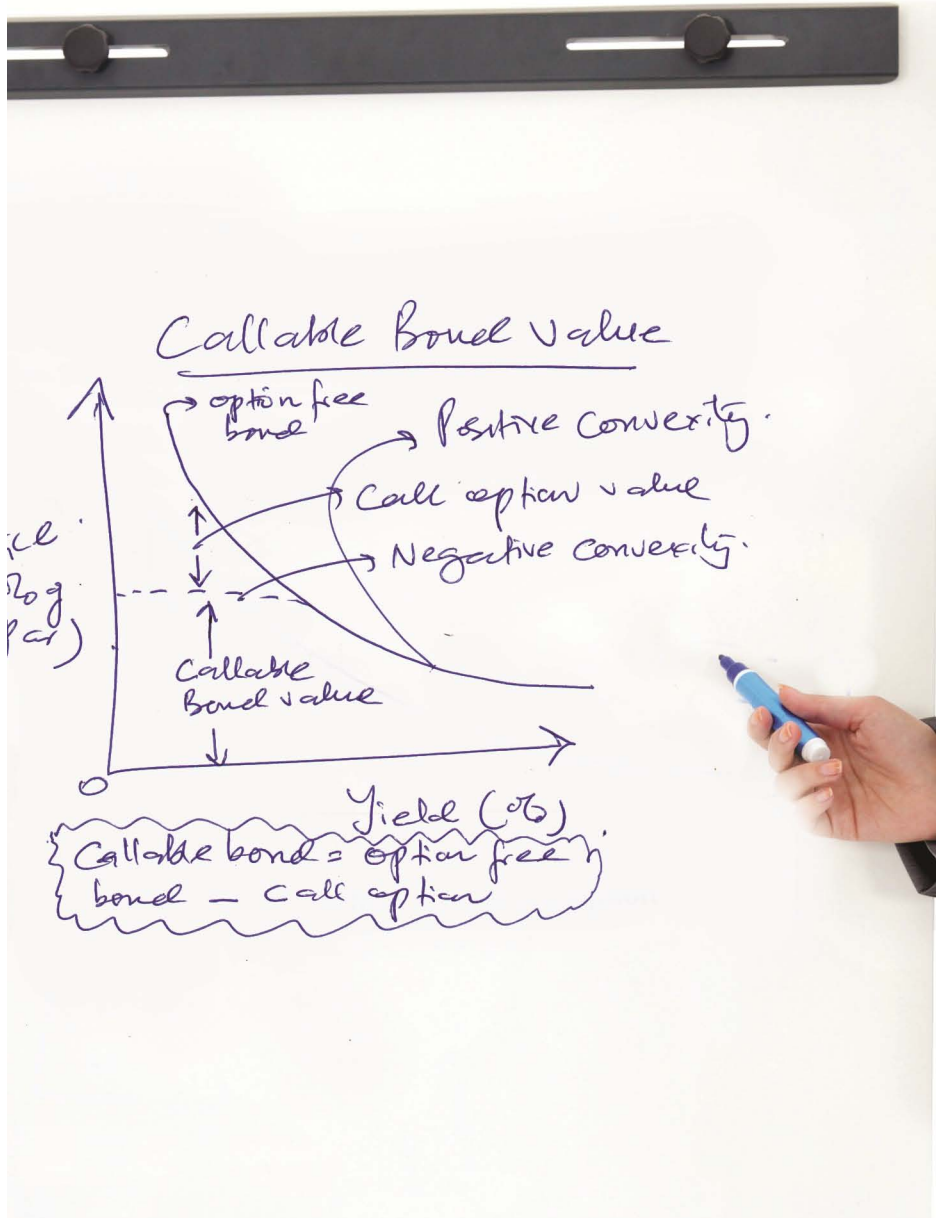 Callable Bond Value
option free
bond
Positive convexity.
Call option value
Negative convexity.
ice
% of
Par)
Callable
Bond value
O
Yield (%)
Callable bond = option free
bond - call option